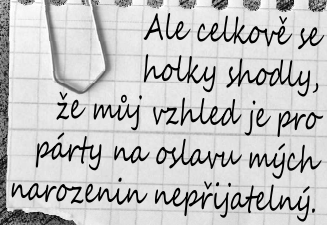 Ale celkově se
holky shodly,
že můj vzhled je pro
párty na oslavu mých
narozenin nepřijatelný.